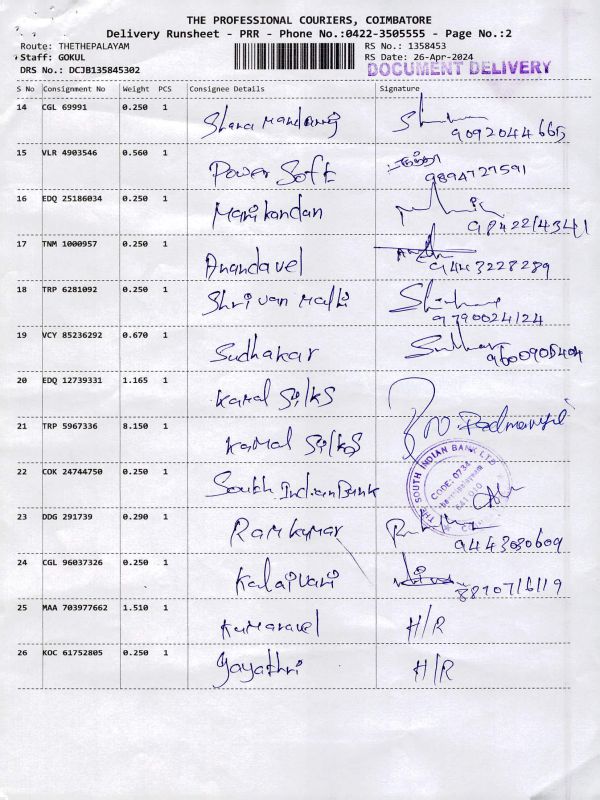 THE PROFESSIONAL COURIERS, COIMBATORE
Delivery Runsheet - PRR - Phone No.:0422-3505555 - Page No.:2
Route: THETHEPALAYAM RS No.: 1358453
Staff: GOKUL RS Date: 26-Apr-2024
DRS No.: DCJB135845302 DOCUMENT DELIVERY
S No Consignment No Weight PCS Consignee Details Signature
14 CGL 69991 0.250 1
9092044665
15 VLR 4903546 0.560 1 Power Soft
9894727591
16 EDQ 25186034 0.250 1 Manikandan
9842214341
17 TNM 1000957 0.250 1 Anandavel
9443228289
18 TRP 6281092 0.250 1 Shrivan Malli
9790024124
19 VCY 85236292 0.670 1 Sudhakar
9600905404
20 EDQ 12739331 1.165 1 Kamal Silks
21 TRP 5967336 8.150 1 Kamal Silks
22 COK 24744750 0.250 1 South Indian Bank
THE SOUTH INDIAN BANK LTD.
CODE: 0734
641 010
23 DDG 291739 0.290 1 Ramkumar
9443030609
24 CGL 96037326 0.250 1 Kalaivani
8870716119
25 MAA 703977662 1.510 1 Kumaravel H/R
26 KOC 61752805 0.250 1 Gayathri H/R